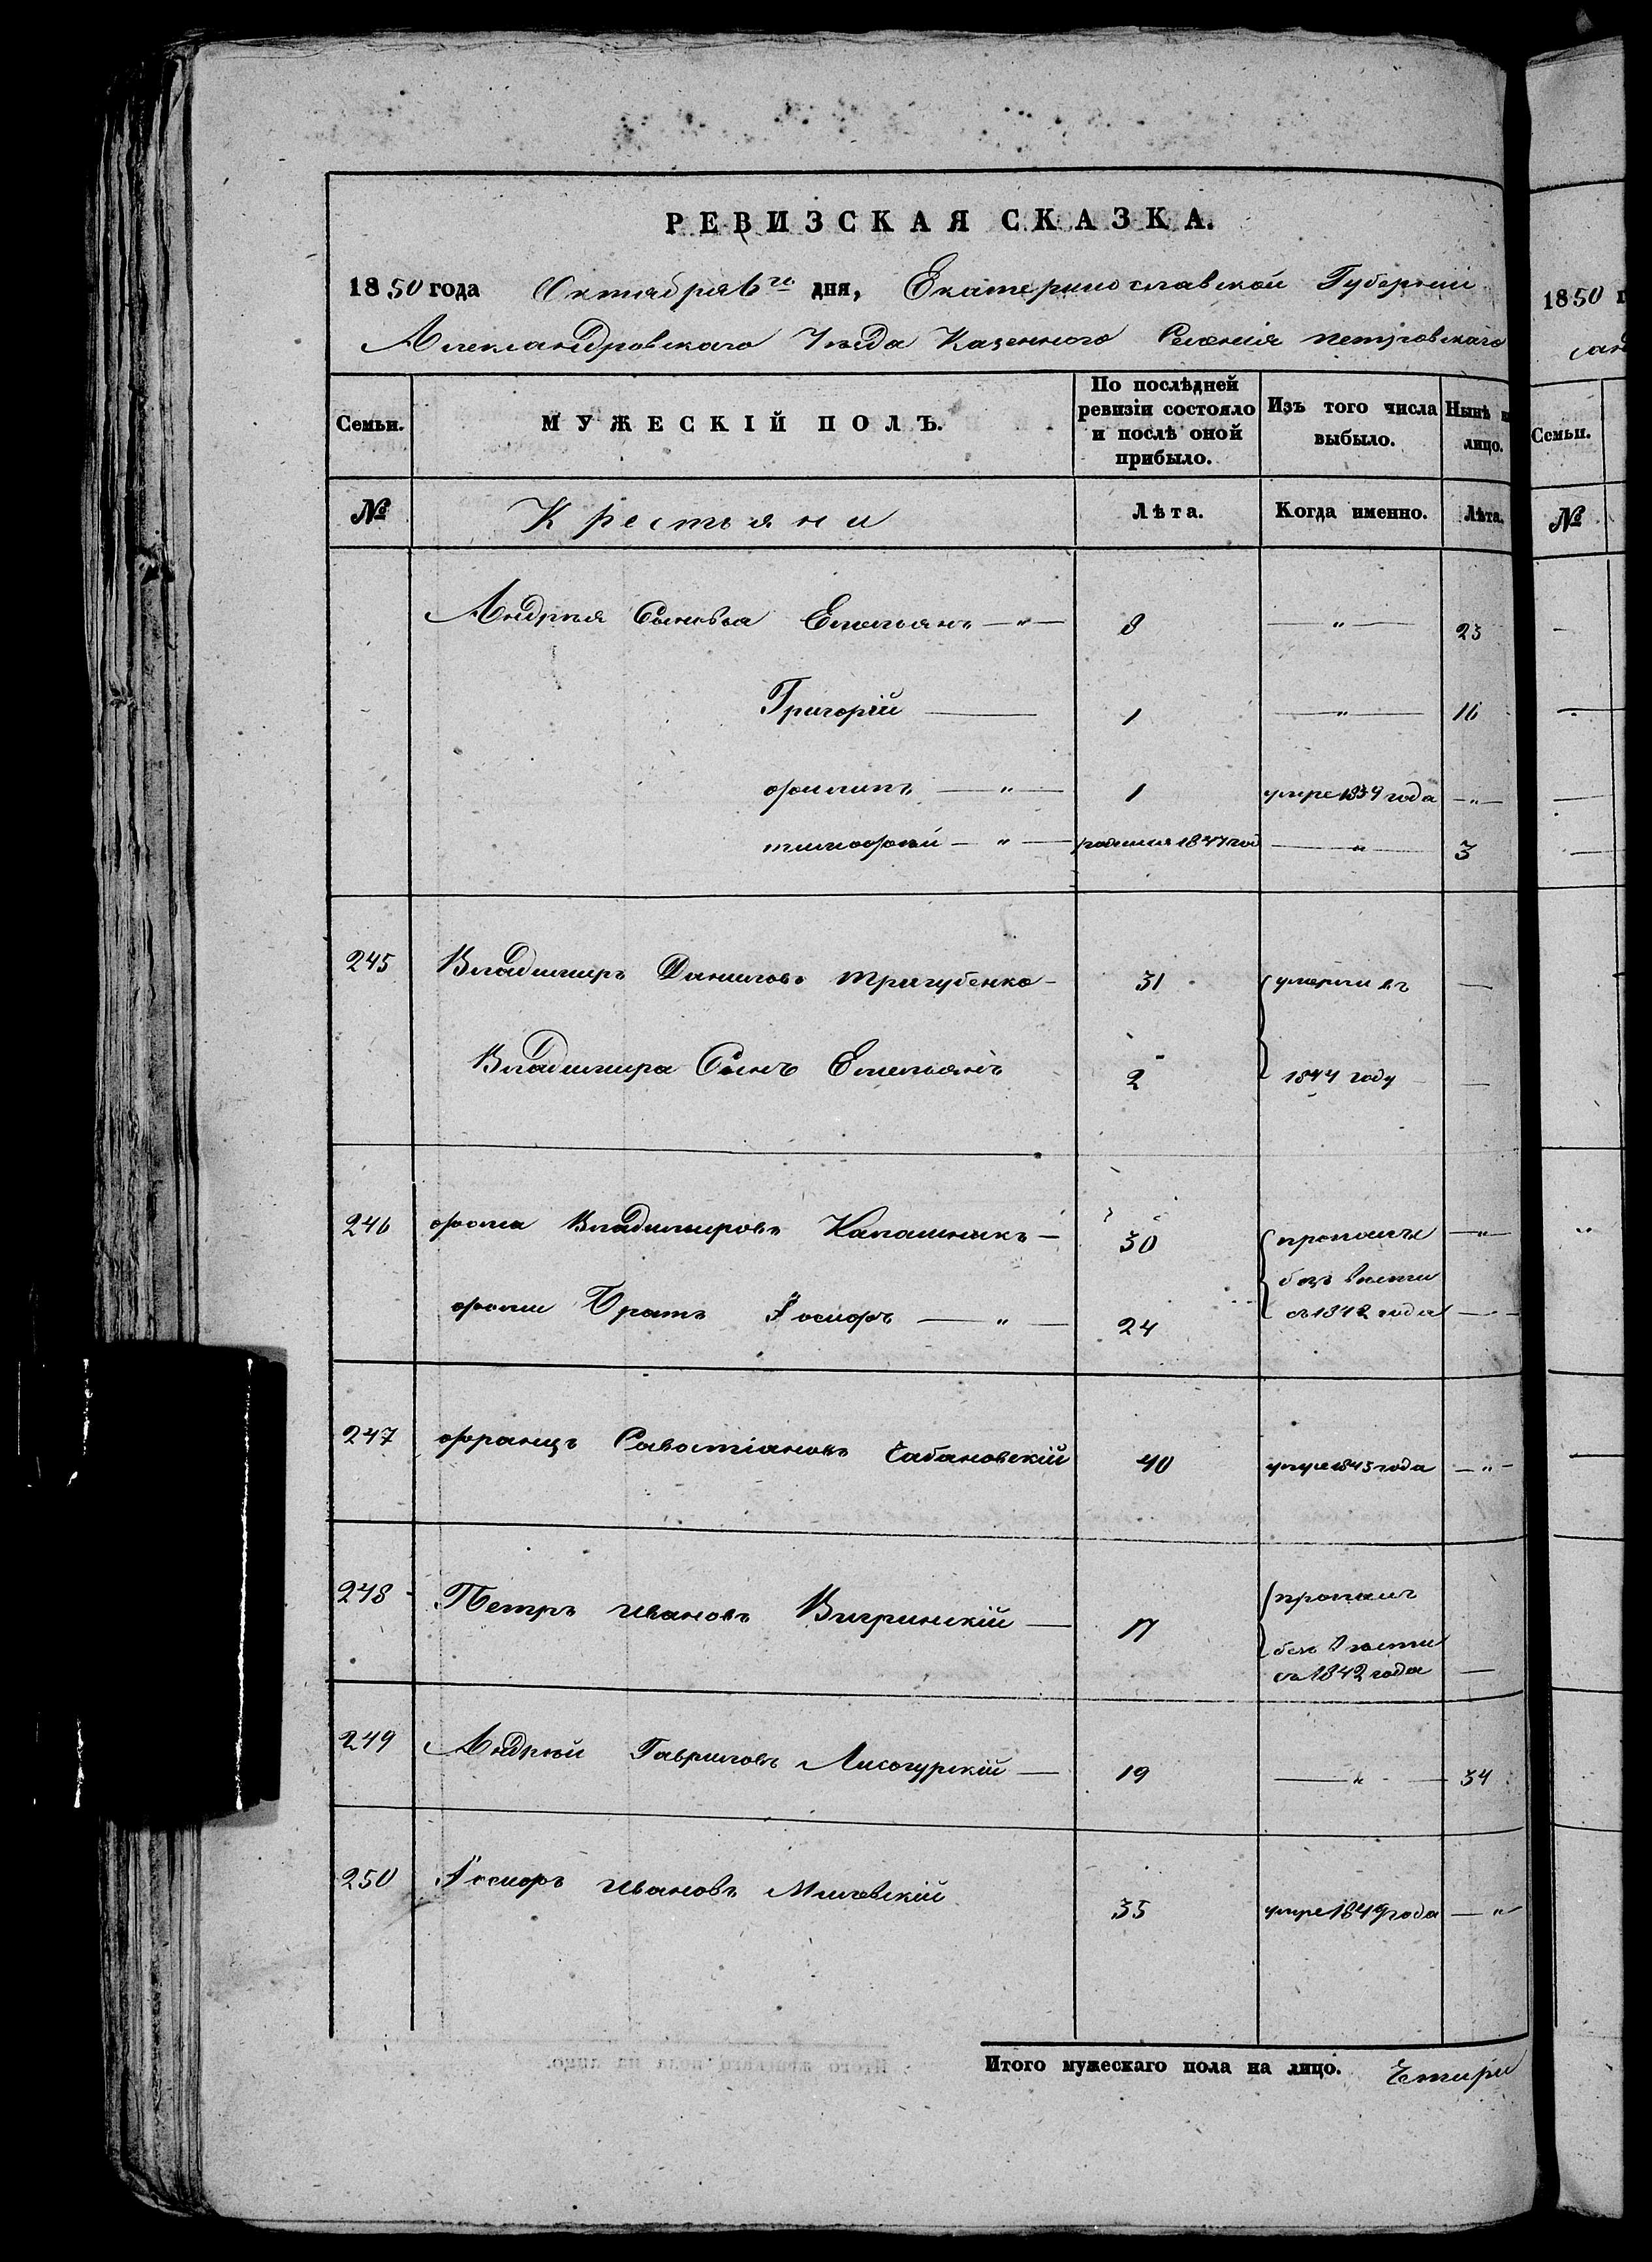 РЕВИЗСКАЯ СКАЗКА.
1850 года Октября 6го дня, Екатеринославской Губернии
Александровского Уезда Казенного Селенія петровскаго
Семьи. МУЖЕСКІЙ ПОЛЪ. По послѣдней ревизіи состояло и послѣ оной прибыло. Изъ того числа выбыло. Нынѣ н лицо.
№ Крестьяни Лѣта. Когда именно. Лѣта.
Андрея Сыновья Емельянъ —„— 8 —„— 23
Григорій — 1 —„— 16
филипъ —„— 1 умре 1839 года —„—
тимофѣй —„— родился 1847 год —„— 3
245 Владимиръ Даниловъ тригубенко — 31 умерли въ —
Владимира Сынъ Емельянъ 2 1844 году —
246 фома Владимировъ Калашникъ — 30 пропалы —„—
безъ вѣсти
фоми Братъ Іосифъ —„— 24 съ 1842 года —
247 францъ Савостіановъ Чабановскій 40 умре 1843 года —„—
248 Петръ ивановъ Вигринскій — 17 пропалъ
безъ вѣсти
съ 1842 года —
249 Андрѣй Гавриловъ Лисогурскій — 19 —„— 34
250 Іосифъ ивановъ Милевскій 35 умре 1849 года —„—
Итого мужескаго пола на лицо. Чтыри
1850 г
Семьи.
№